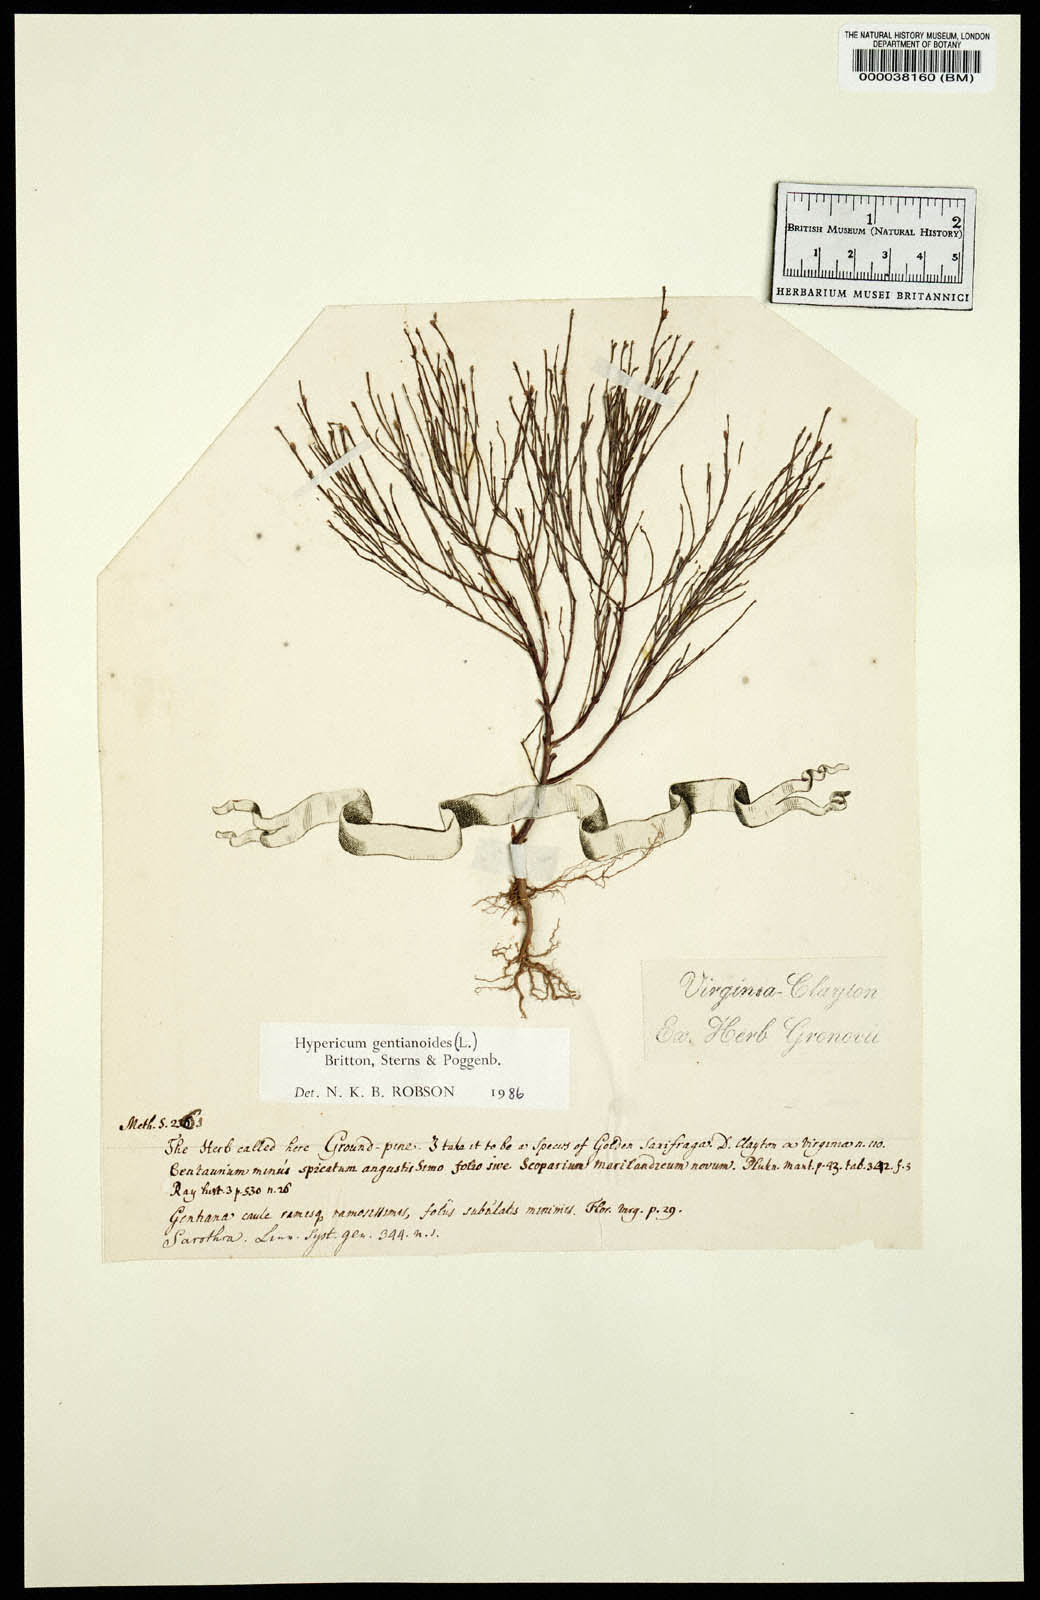 THE NATURAL HISTORY MUSEUM, LONDON
DEPARTMENT OF BOTANY
000038160 (BM)
1 2
BRITISH MUSEUM (NATURAL HISTORY)
1 2 3 4 5
HERBARIUM MUSEI BRITANNICI
Virginia-Clayton
Ex. Herb Gronovii
Hypericum gentianoides (L.)
Britton, Sterns & Poggenb.
Det. N. K. B. ROBSON 1986
Meth. S.
The Herb called here Ground-pine. I take it to be a Species of Golden Saxifraga. D. Clayton ex Virginia n. 110.
Centaurium minus spicatum angustissimo folio sive Scoparium Marilandicum novum. Plukn. mant. p. 43. tab. 342. f. 3
Ray hist. 3 p. 530 n. 26
Gentiana caule ramisq ramosissimis, foliis subulatis minimis. Flor. Virg. p. 29.
Sarothra. Linn. Syst. gen. 344. n. 1.